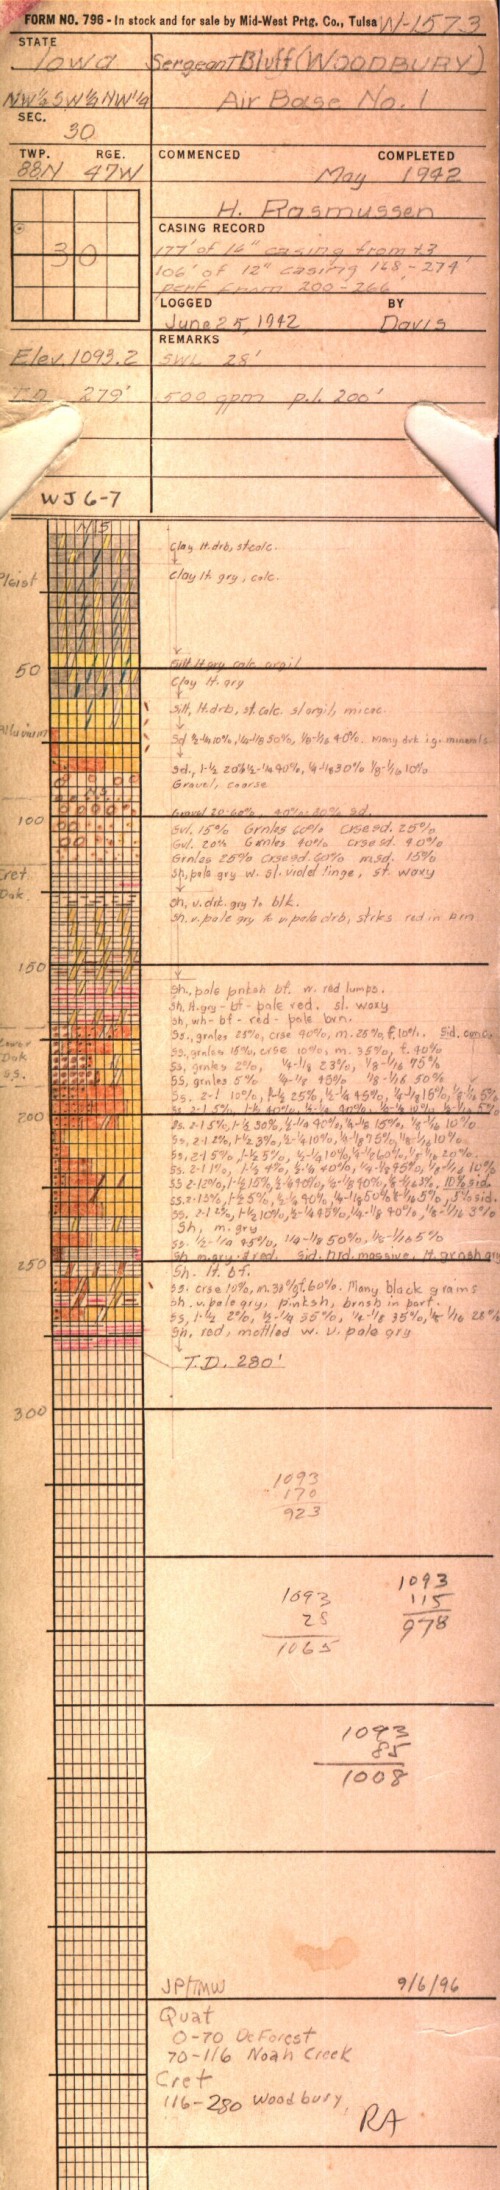 FORM NO. 796 - In stock and for sale by Mid-West Prtg. Co., Tulsa W-1573
STATE
Iowa Sergeant Bluff (WOODBURY)
NW¼ SW¼ NW¼ Air Base No. 1
SEC.
30
TWP. RGE. COMMENCED COMPLETED
88N 47W May 1942
H. Rasmussen
CASING RECORD
30
177' of 16" casing from +3
106' of 12" casing 168-274'
perf from 200-266
LOGGED BY
June 25, 1942 Davis
REMARKS
Elev. 1093.2 SWL 28'
T.D. 279' 500 gpm p.l. 200'
WJ 6-7
Clay lt. drb, st calc.
Pleist Clay lt gry, calc.
50 Silt lt gry calc argil
Clay lt. gry
Silt, lt. drb, st. calc. sl argil, micac.
Alluvium Sd ½-¼ 10%, ¼-⅛ 50%, ⅛-1/16 40%. Many drk ig. minerals
Sd., 1-½ 20% ½-¼ 40%, ¼-⅛ 30% ⅛-1/16 10%
Gravel, coarse
100 Gravel 20-60%, 40%-80% sd.
Gvl. 15% Grnles 60% crse sd. 25%
Gvl. 20% Grnles 40% crse sd. 40%
Grnles 25% crse sd. 60% m sd. 15%
Cret. Sh, pale gry w. sl. violet tinge, st. waxy
Dak. Sh, v. drk. gry to blk.
Sh. v. pale gry to v. pale drb, strks red in brn
150
Sh., pale pnksh bf. w. red lumps.
Sh, lt. gry - bf - pale red. sl. waxy
Sh, wh - bf - red - pale brn.
Lower Dak s.s. Ss., grnles 25%, crse 40%, m. 25%, f. 10%. Sid. conc.
SS, grnles 15%, crse 10%, m. 35%, f. 40%
SS, grnles 2%, ¼-⅛ 23%, ⅛-1/16 75%
SS, grnles 5% ¼-⅛ 45% ⅛-1/16 50%
Ss. 2-1 10%, 1-½ 25%, ½-¼ 45%, ¼-⅛ 15%, ⅛-1/16 5%
200
Ss. 2-1 5%, 1-½ 30%, ½-¼ 40%, ¼-⅛ 15%, ⅛-1/16 10%
Ss. 2-1 2%, 1-½ 3%, ½-¼ 10%, ¼-⅛ 75%, ⅛-1/16 10%
Ss. 2-1 5%, 1-½ 5%, ½-¼ 10%, ¼-⅛ 60%, ⅛-1/16 20%
Ss. 2-1 1%, 1-½ 4%, ½-¼ 40%, ¼-⅛ 45%, ⅛-1/16 10%
Sh, m. gry
SS. ½-¼ 45%, ¼-⅛ 50%, ⅛-1/16 5%
250 Sh m. gry & red. Sid. nld. massive, lt. grnsh gry
Sh. lt. bf.
SS. crse 10%, m. 30% f. 60%. Many black grains
Sh. v. pale gry, pinksh, brnsh in part.
SS, 1-½ 2%, ½-¼ 35%, ¼-⅛ 35%, ⅛-1/16 28%
Sh, red, mottled w. v. pale gry
T.D. 280'
300
1093
170
923
1093
28
1065
1093
115
978
1093
85
1008
JP/TMW 9/6/96
Quat
0-70 DeForest
70-116 Noah Creek
Cret
116-280 Woodbury
RA